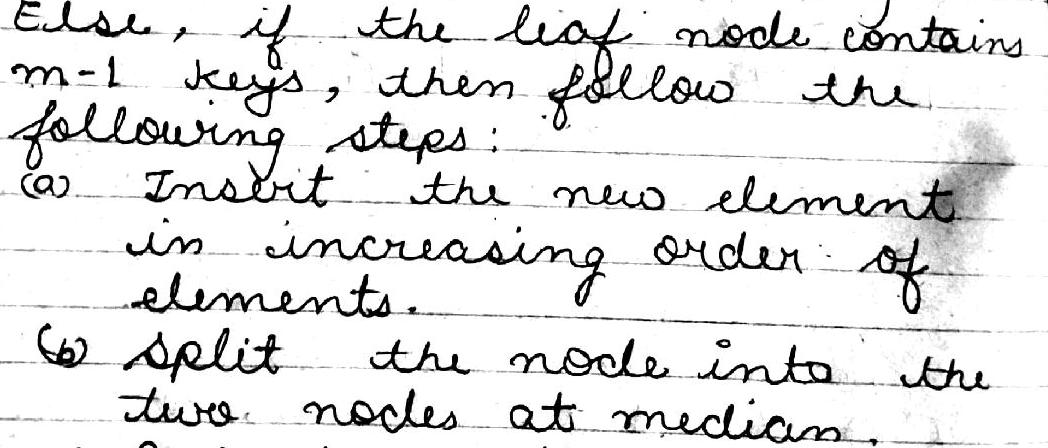 Else, if the leaf node contains
m-1 keys, then follow the
following steps:
(a) Insert the new element
in increasing order of
elements.
(b) split the node into the
two nodes at median.